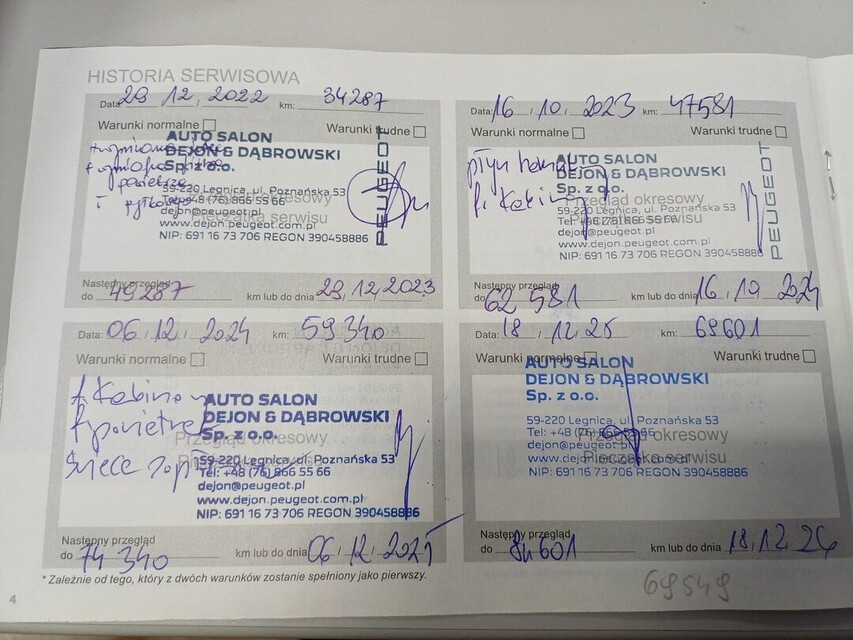 HISTORIA SERWISOWA
Data: 29 / 12 / 2022 km: 34287
Warunki normalne Warunki trudne
AUTO SALON
DEJON & DĄBROWSKI
Sp. z o.o.
59-220 Legnica, ul. Poznańska 53
Tel: +48 (76) 866 55 66
dejon@peugeot.pl
www.dejon.peugeot.com.pl
NIP: 691 16 73 706 REGON 390458886
PEUGEOT
Przegląd okresowy
Pieczątka serwisu
Następny przegląd
do 49287 km lub do dnia 29 / 12 / 2023
Data: 16 / 10 / 2023 km: 47581
Warunki normalne Warunki trudne
płyn
f. Kabiny
AUTO SALON
DEJON & DĄBROWSKI
Sp. z o.o.
59-220 Legnica, ul. Poznańska 53
Tel: +48 (76) 866 55 66
dejon@peugeot.pl
www.dejon.peugeot.com.pl
NIP: 691 16 73 706 REGON 390458886
PEUGEOT
Przegląd okresowy
Pieczątka serwisu
Następny przegląd
do 62 581 km lub do dnia 16 / 10 / 2024
Data: 06 / 12 / 2024 km: 59 340
Warunki normalne Warunki trudne
f. Kabinowy
f. powietrza
Świece
AUTO SALON
DEJON & DĄBROWSKI
Sp. z o.o.
59-220 Legnica, ul. Poznańska 53
Tel: +48 (76) 866 55 66
dejon@peugeot.pl
www.dejon.peugeot.com.pl
NIP: 691 16 73 706 REGON 390458886
Przegląd okresowy
Pieczątka serwisu
Następny przegląd
do 74 340 km lub do dnia 06 / 12 / 2025
Data: 18 / 12 25 km: 69601
Warunki normalne Warunki trudne
AUTO SALON
DEJON & DĄBROWSKI
Sp. z o.o.
59-220 Legnica, ul. Poznańska 53
Tel: +48 (76) 866 55 66
dejon@peugeot.pl
www.dejon.peugeot.com.pl
NIP: 691 16 73 706 REGON 390458886
Przegląd okresowy
Pieczątka serwisu
Następny przegląd
do 84601 km lub do dnia 18.12 26
* Zależnie od tego, który z dwóch warunków zostanie spełniony jako pierwszy.
69549
4